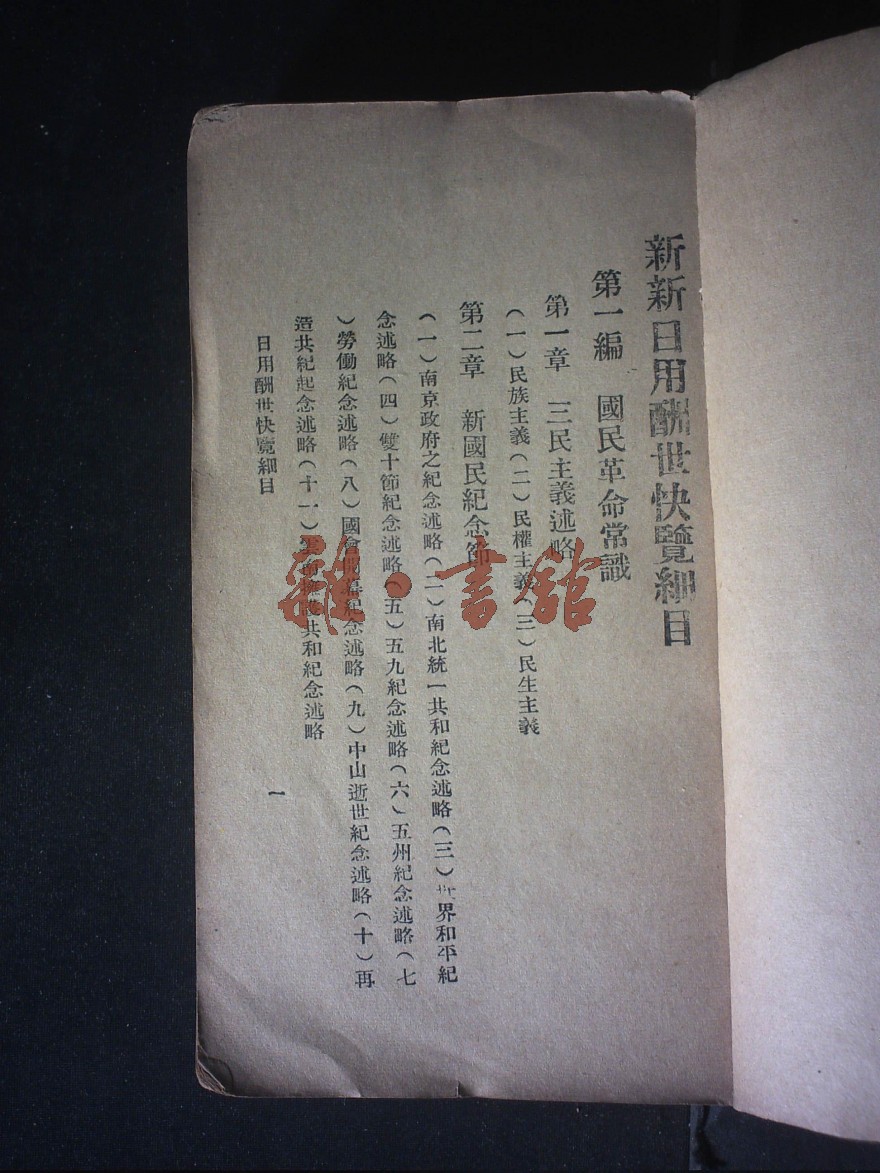 新新日用酬世快覽細目
第一編　國民革命常識
第一章　三民主義述略
（一）民族主義（二）民權主義（三）民生主義
第二章　新國民紀念節
（一）南京政府之紀念述略（二）南北統一共和紀念述略（三）世界和平紀
念述略（四）雙十節紀念述略（五）五九紀念述略（六）五州紀念述略（七
）勞働紀念述略（八）國會開幕紀念述略（九）中山逝世紀念述略（十）再
造共紀起念述略（十一）擁護共和紀念述略
日用酬世快覽細目
一
雜·書館